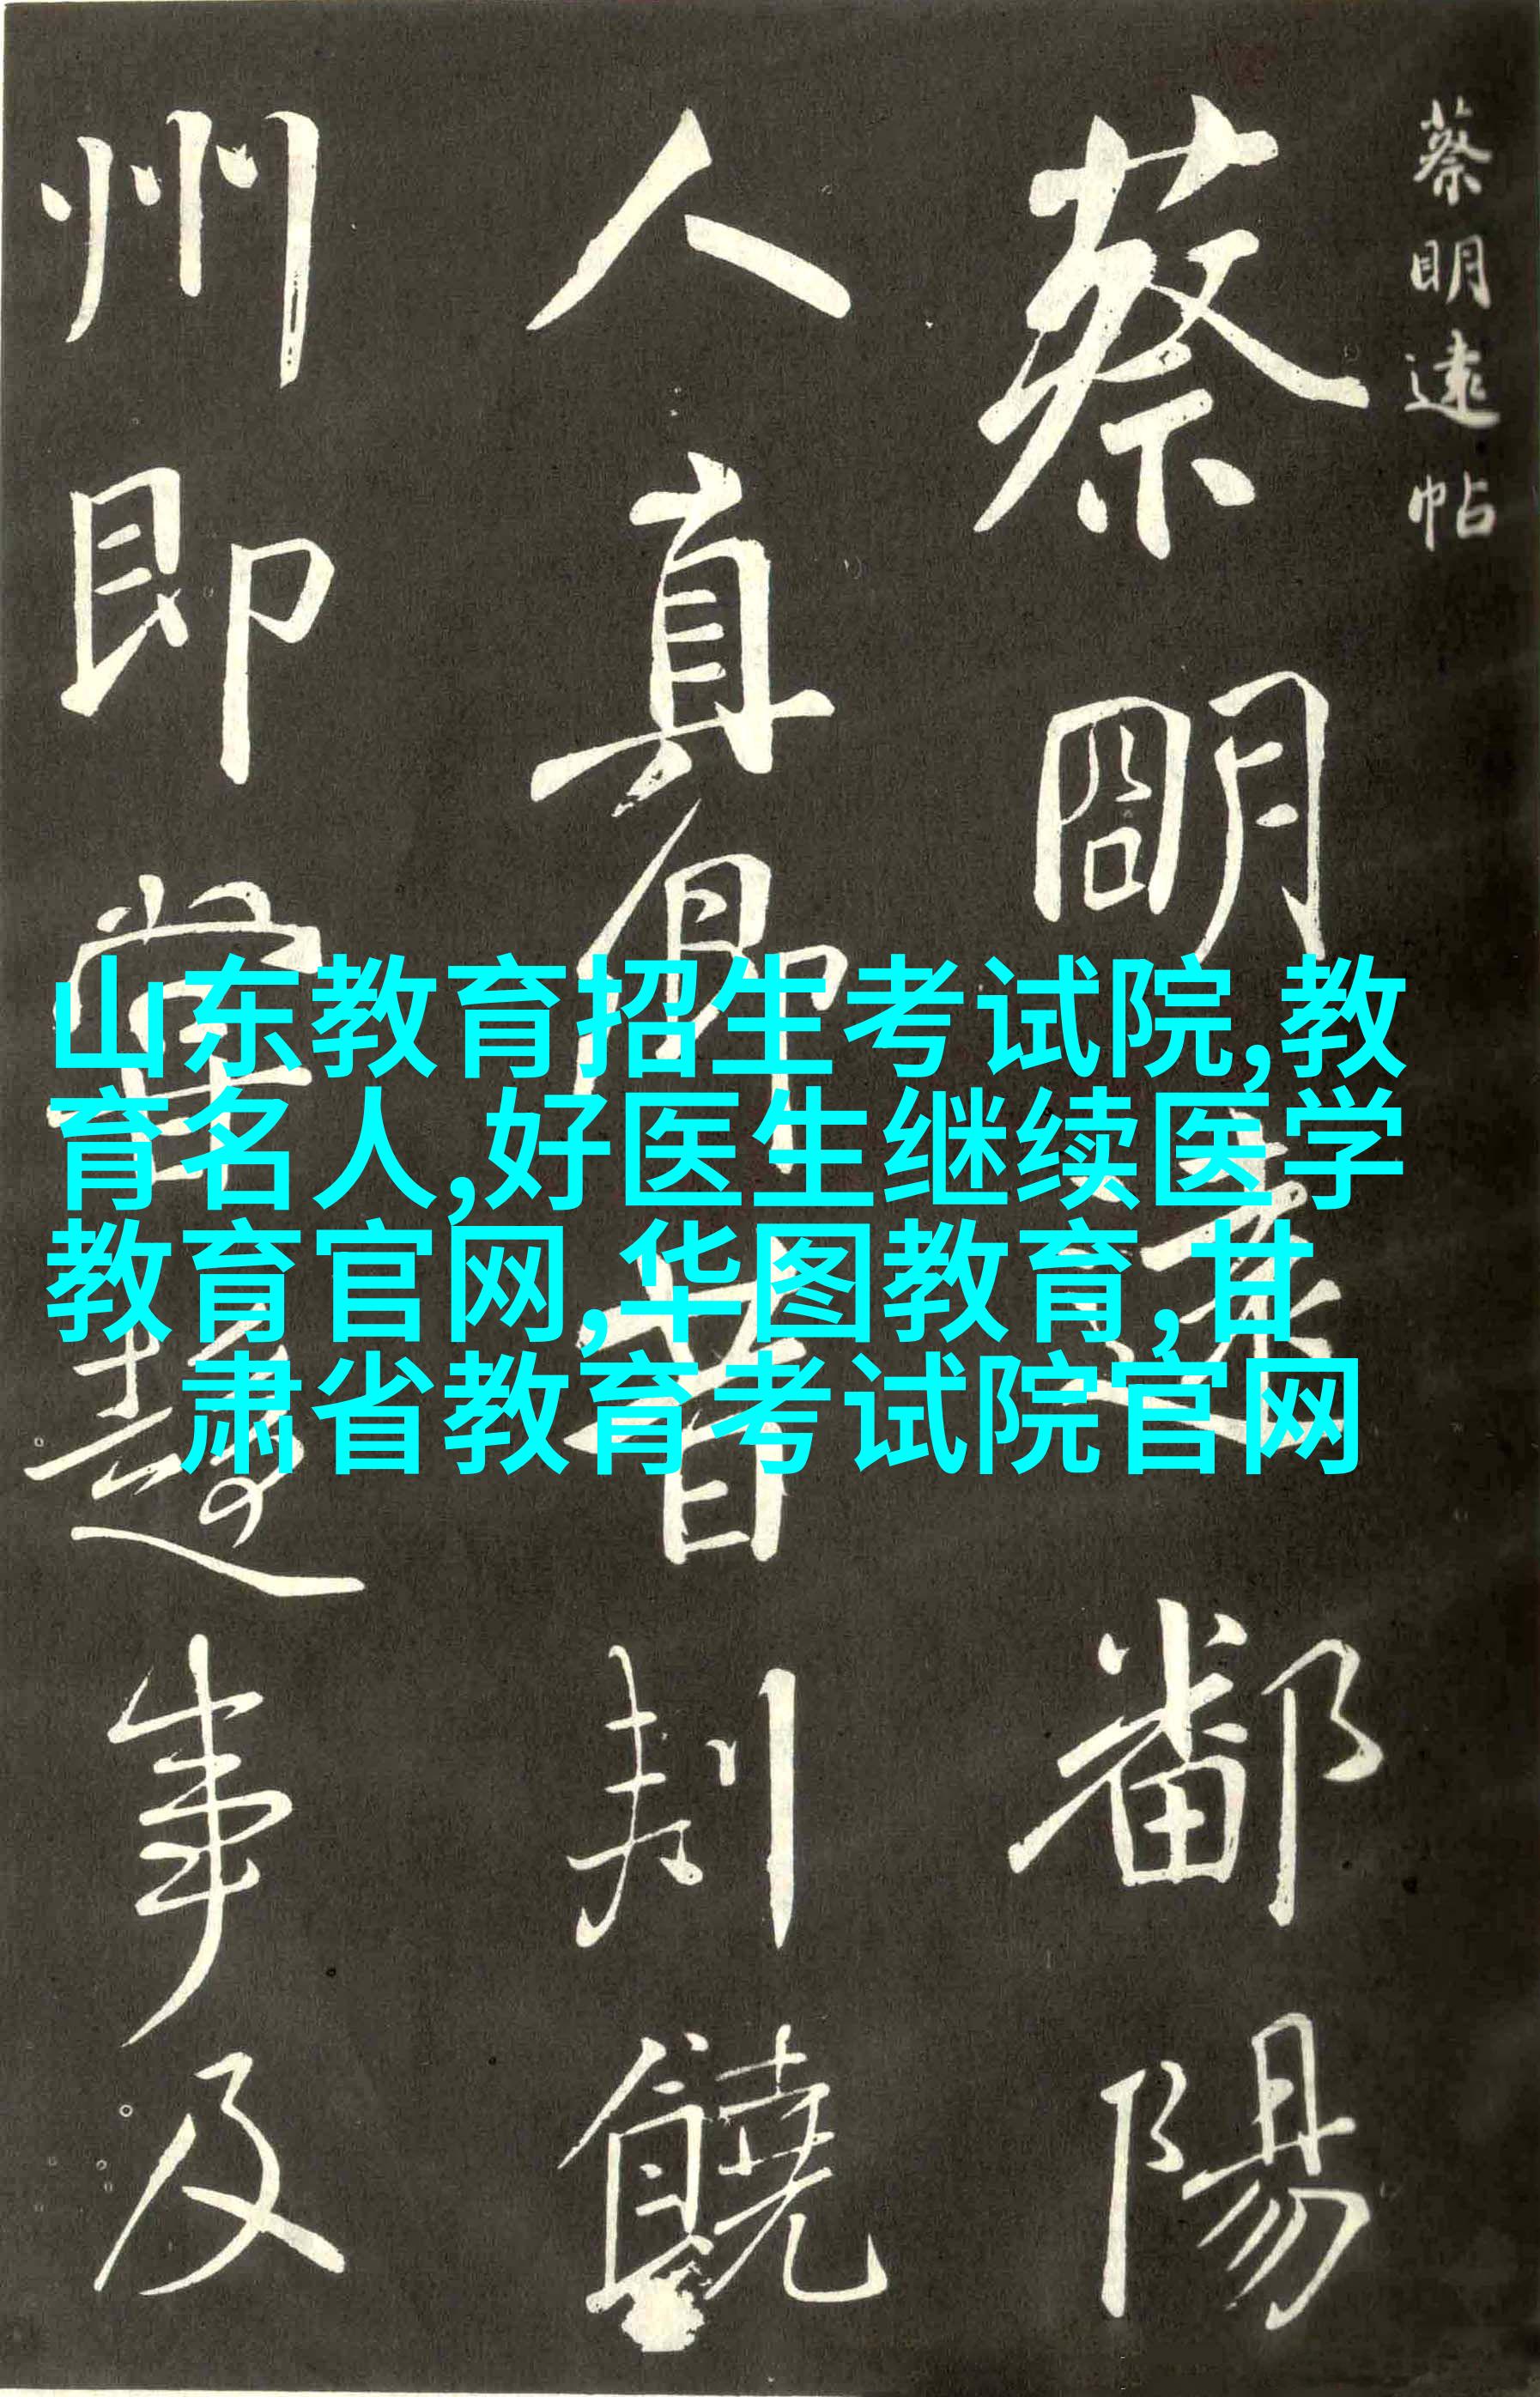 蔡明遠帖
蔡明遠鄱陽
人真卿昔刾饒
州即嘗趨事及
山东教育招生考试院,教
育名人,好医生继续医学
教育官网,华图教育,甘
肃省教育考试院官网